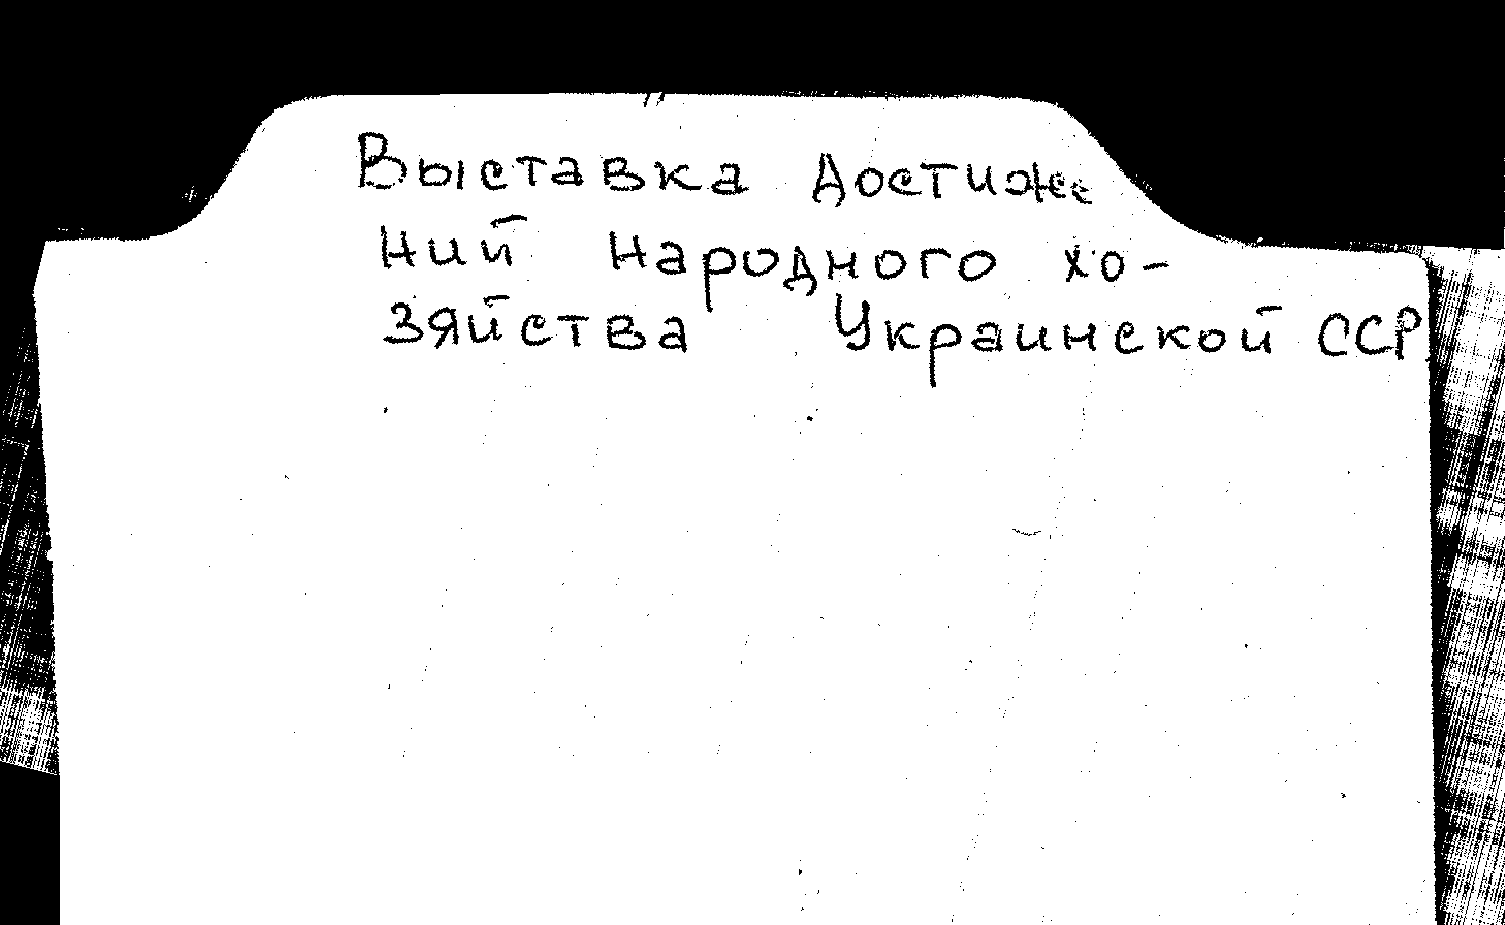 Выставка достиже
ний народного хо-
зяйства Украинской ССР